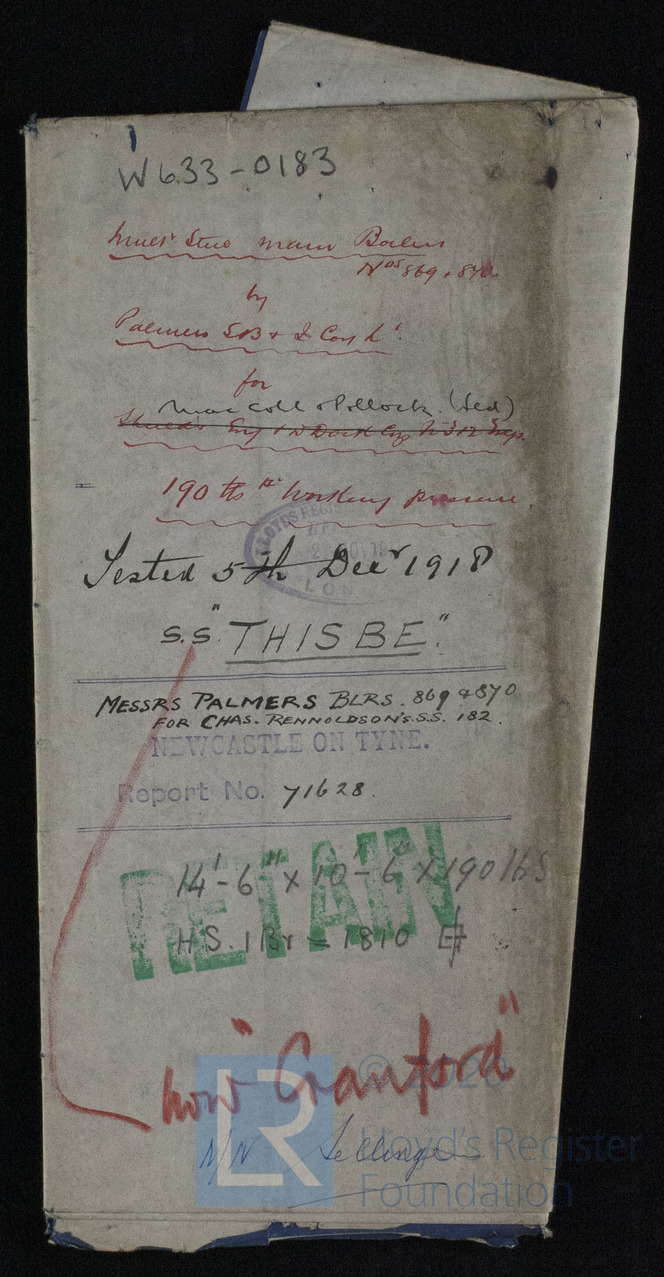 W633-0183
Mult Steel main Boilers
Nos 869 & 870
by
Palmers S.B & I Coy Ld
for
Mac Coll & Pollock. (Ltd)
Eng & D Dock Coy No 312
190 lbs Working pressure
LLOYD'S REGIS
NOV 191
LON
Tested 5th Decr 1918
S.S. "THISBE"
MESSRS PALMERS BLRS. 869 & 870
FOR CHAS. RENNOLDSON'S S.S. 182.
NEWCASTLE ON TYNE.
Report No. 71628.
RETAIN
14'-6" x 10'-6" x 190 lbs
H.S. 1 Br = 1810
now "Cranford"
© 2020
LR
N/N Sellinge
Lloyd's Register
Foundation